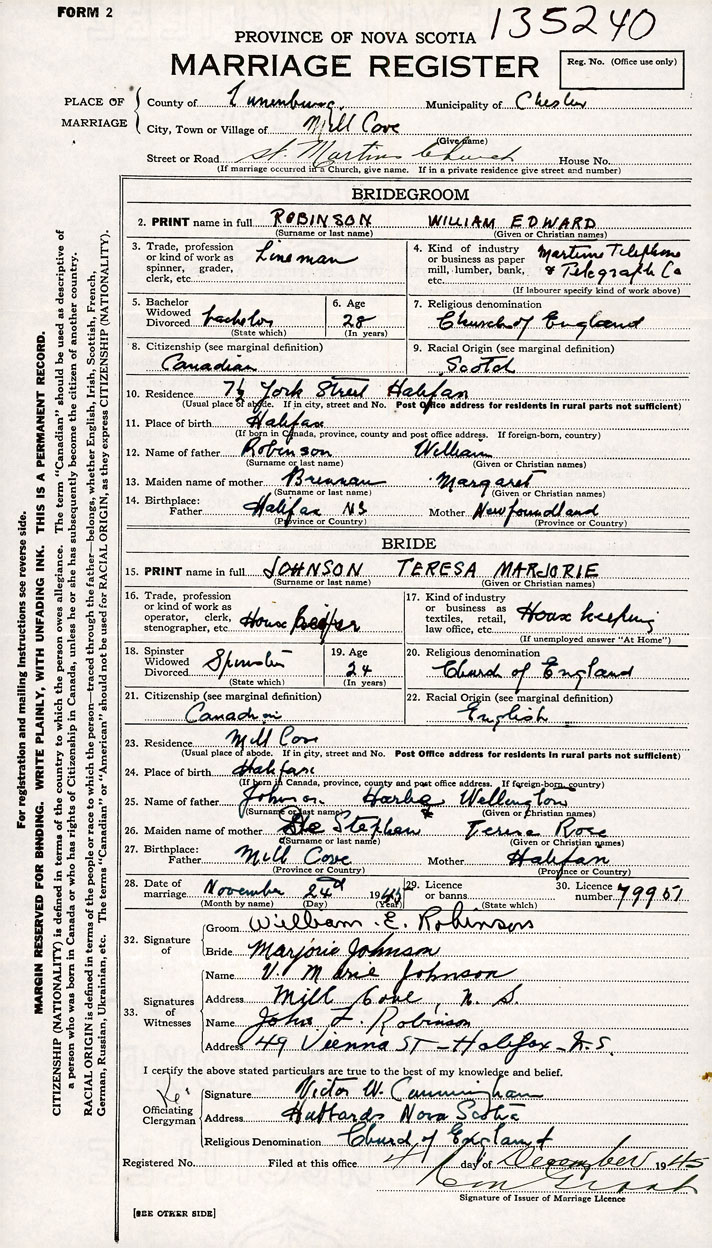 FORM 2
135240
PROVINCE OF NOVA SCOTIA
MARRIAGE REGISTER
Reg. No. (Office use only)
PLACE OF MARRIAGE
County of Lunenburg Municipality of Chester
City, Town or Village of Mill Cove
(Give name)
Street or Road St. Martins Church House No.
(If marriage occurred in a Church, give name. If in a private residence give street and number)
BRIDEGROOM
2. PRINT name in full ROBINSON WILLIAM EDWARD
(Surname or last name) (Given or Christian names)
3. Trade, profession or kind of work as spinner, grader, clerk, etc. Lineman
4. Kind of industry or business as paper mill, lumber, bank, etc. Martime Telephone & Telegraph Co
(If labourer specify kind of work above)
5. Bachelor Widowed Divorced bachelor
(State which)
6. Age 28
(In years)
7. Religious denomination
Church of England
8. Citizenship (see marginal definition)
Canadian
9. Racial Origin (see marginal definition)
Scotch
10. Residence 7½ York Street Halifax
(Usual place of abode. If in city, street and No. Post Office address for residents in rural parts not sufficient)
11. Place of birth Halifax
(If born in Canada, province, county and post office address. If foreign-born, country)
12. Name of father Robinson William
(Surname or last name) (Given or Christian names)
13. Maiden name of mother Brennan Margaret
(Surname or last name) (Given or Christian names)
14. Birthplace: Father Halifax NS Mother Newfoundland
(Province or Country) (Province or Country)
BRIDE
15. PRINT name in full JOHNSON TERESA MARJORIE
(Surname or last name) (Given or Christian names)
16. Trade, profession or kind of work as operator, clerk, stenographer, etc House
17. Kind of industry or business as textiles, retail, law office, etc. House keeping
(If unemployed answer "At Home")
18. Spinster Widowed Divorced Spinster
(State which)
19. Age 24
(In years)
20. Religious denomination
Church of England
21. Citizenship (see marginal definition)
Canadian
22. Racial Origin (see marginal definition)
English
23. Residence Mill Cove
(Usual place of abode. If in city, street and No. Post Office address for residents in rural parts not sufficient)
24. Place of birth Halifax
(If born in Canada, province, county and post office address. If foreign-born, country)
25. Name of father Johnson Wellington
(Surname or last name) (Given or Christian names)
26. Maiden name of mother Stephen Rose
(Surname or last name) (Given or Christian names)
27. Birthplace: Father Mill Cove Mother Halifax
(Province or Country) (Province or Country)
28. Date of marriage November 24 1945
(Month by name) (Day) (Year)
29. Licence or banns
(State which)
30. Licence number 79957
32. Signature of
Groom William E. Robinson
Bride Marjorie Johnson
33. Signatures of Witnesses
Name V. Marie Johnson
Address Mill Cove, N. S.
Name John F. Robinson
Address 49 Vienna ST - Halifax - N.S.
I certify the above stated particulars are true to the best of my knowledge and belief.
Officiating Clergyman
Signature Victor W. Cunningham
Address Hubbards Nova Scotia
Religious Denomination Church of England
Registered No. Filed at this office 4 day of December 1945
Signature of Issuer of Marriage Licence
[SEE OTHER SIDE]
For registration and mailing instructions see reverse side.
MARGIN RESERVED FOR BINDING. WRITE PLAINLY, WITH UNFADING INK. THIS IS A PERMANENT RECORD.
CITIZENSHIP (NATIONALITY) is defined in terms of the country to which the person owes allegiance. The term "Canadian" should be used as descriptive of
a person who was born in Canada or who has rights of Citizenship in Canada, unless he or she has subsequently become the citizen of another country.
RACIAL ORIGIN is defined in terms of the people or race to which the person—traced through the father—belongs, whether English, Irish, Scottish, French,
German, Russian, Ukrainian, etc. The terms "Canadian" or "American" should not be used for RACIAL ORIGIN, as they express CITIZENSHIP (NATIONALITY).